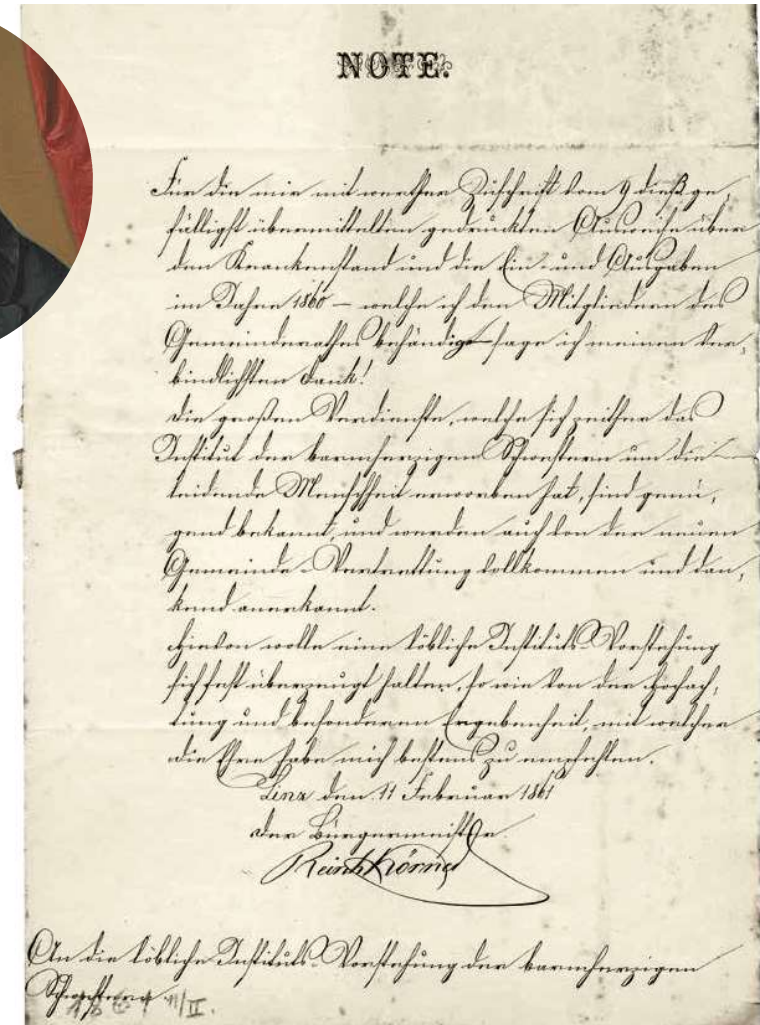 NOTE.
Für die mir mit werther Zuschrift vom 9 dieß ge,
fälligst übermittelten gedruckten Ausweise über
den Krankenstand und die Ein- und Ausgaben
im Jahre 1860 – welche ich den Mitgliedern des
Gemeinderathes behändigt sage ich meinen ver,
bindlichsten Dank!
Die großen Verdienste, welche sich seither das
Institut der barmherzigen Schwestern um die
leidende Menschheit erworben hat, sind genü,
gend bekannt, und werden auch von der neuen
Gemeinde-Vertrettung vollkommen und dan,
kend anerkannt.
Hievon wolle eine löbliche Instituts-Vorstehung
sich fest überzeugt halten, so wie von der Hochach,
tung und besonderen Ergebenheit, mit welcher
die Ehre habe mich bestens zu empfehlen.
Linz den 11 Februar 1861
Der Bürgermeister
Reinh Körner
An die löbliche Instituts-Vorstehung der barmherzigen
Schwestern
1861 11/II.